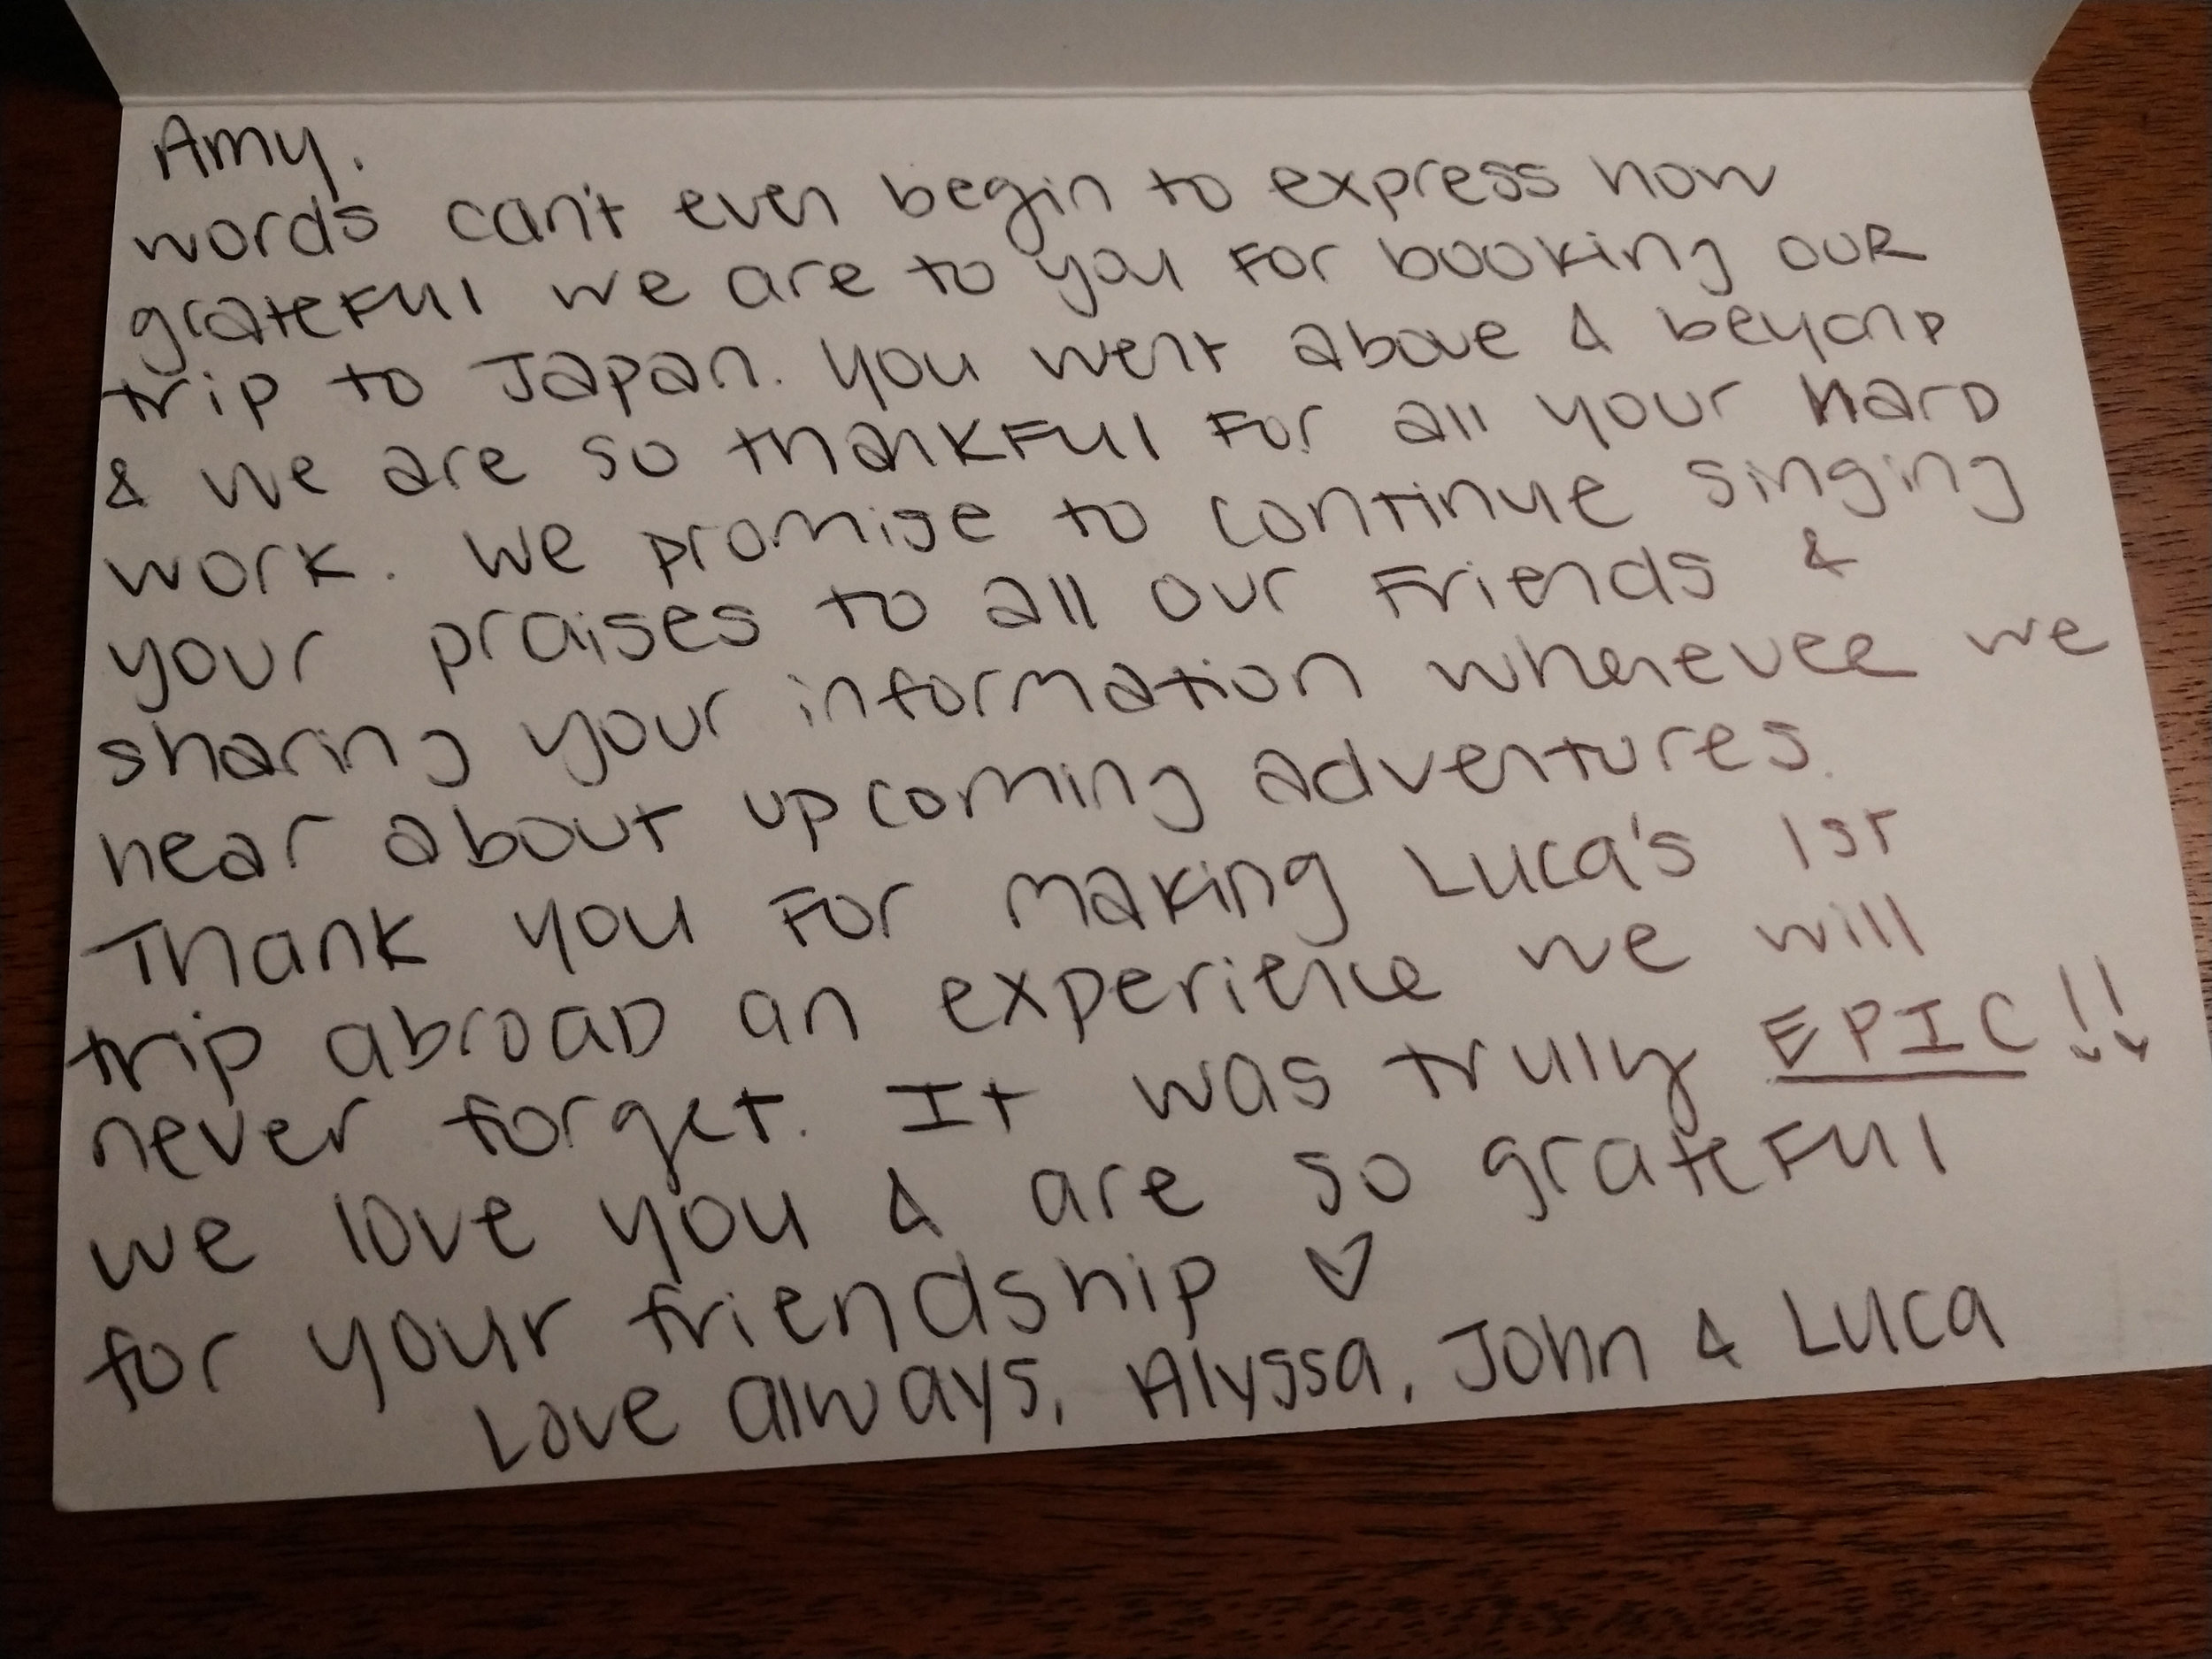 Amy,
words can't even begin to express how
grateful we are to you for booking our
trip to Japan. You went above & beyond
& we are so thankful for all your hard
work. We promise to continue singing
your praises to all our friends &
sharing your information wherever we
hear about upcoming adventures.
Thank you for making Luca's 1st
trip abroad an experience we will
never forget. It was truly EPIC!!
we love you & are so grateful
for your friendship ♡
Love always, Alyssa, John & Luca